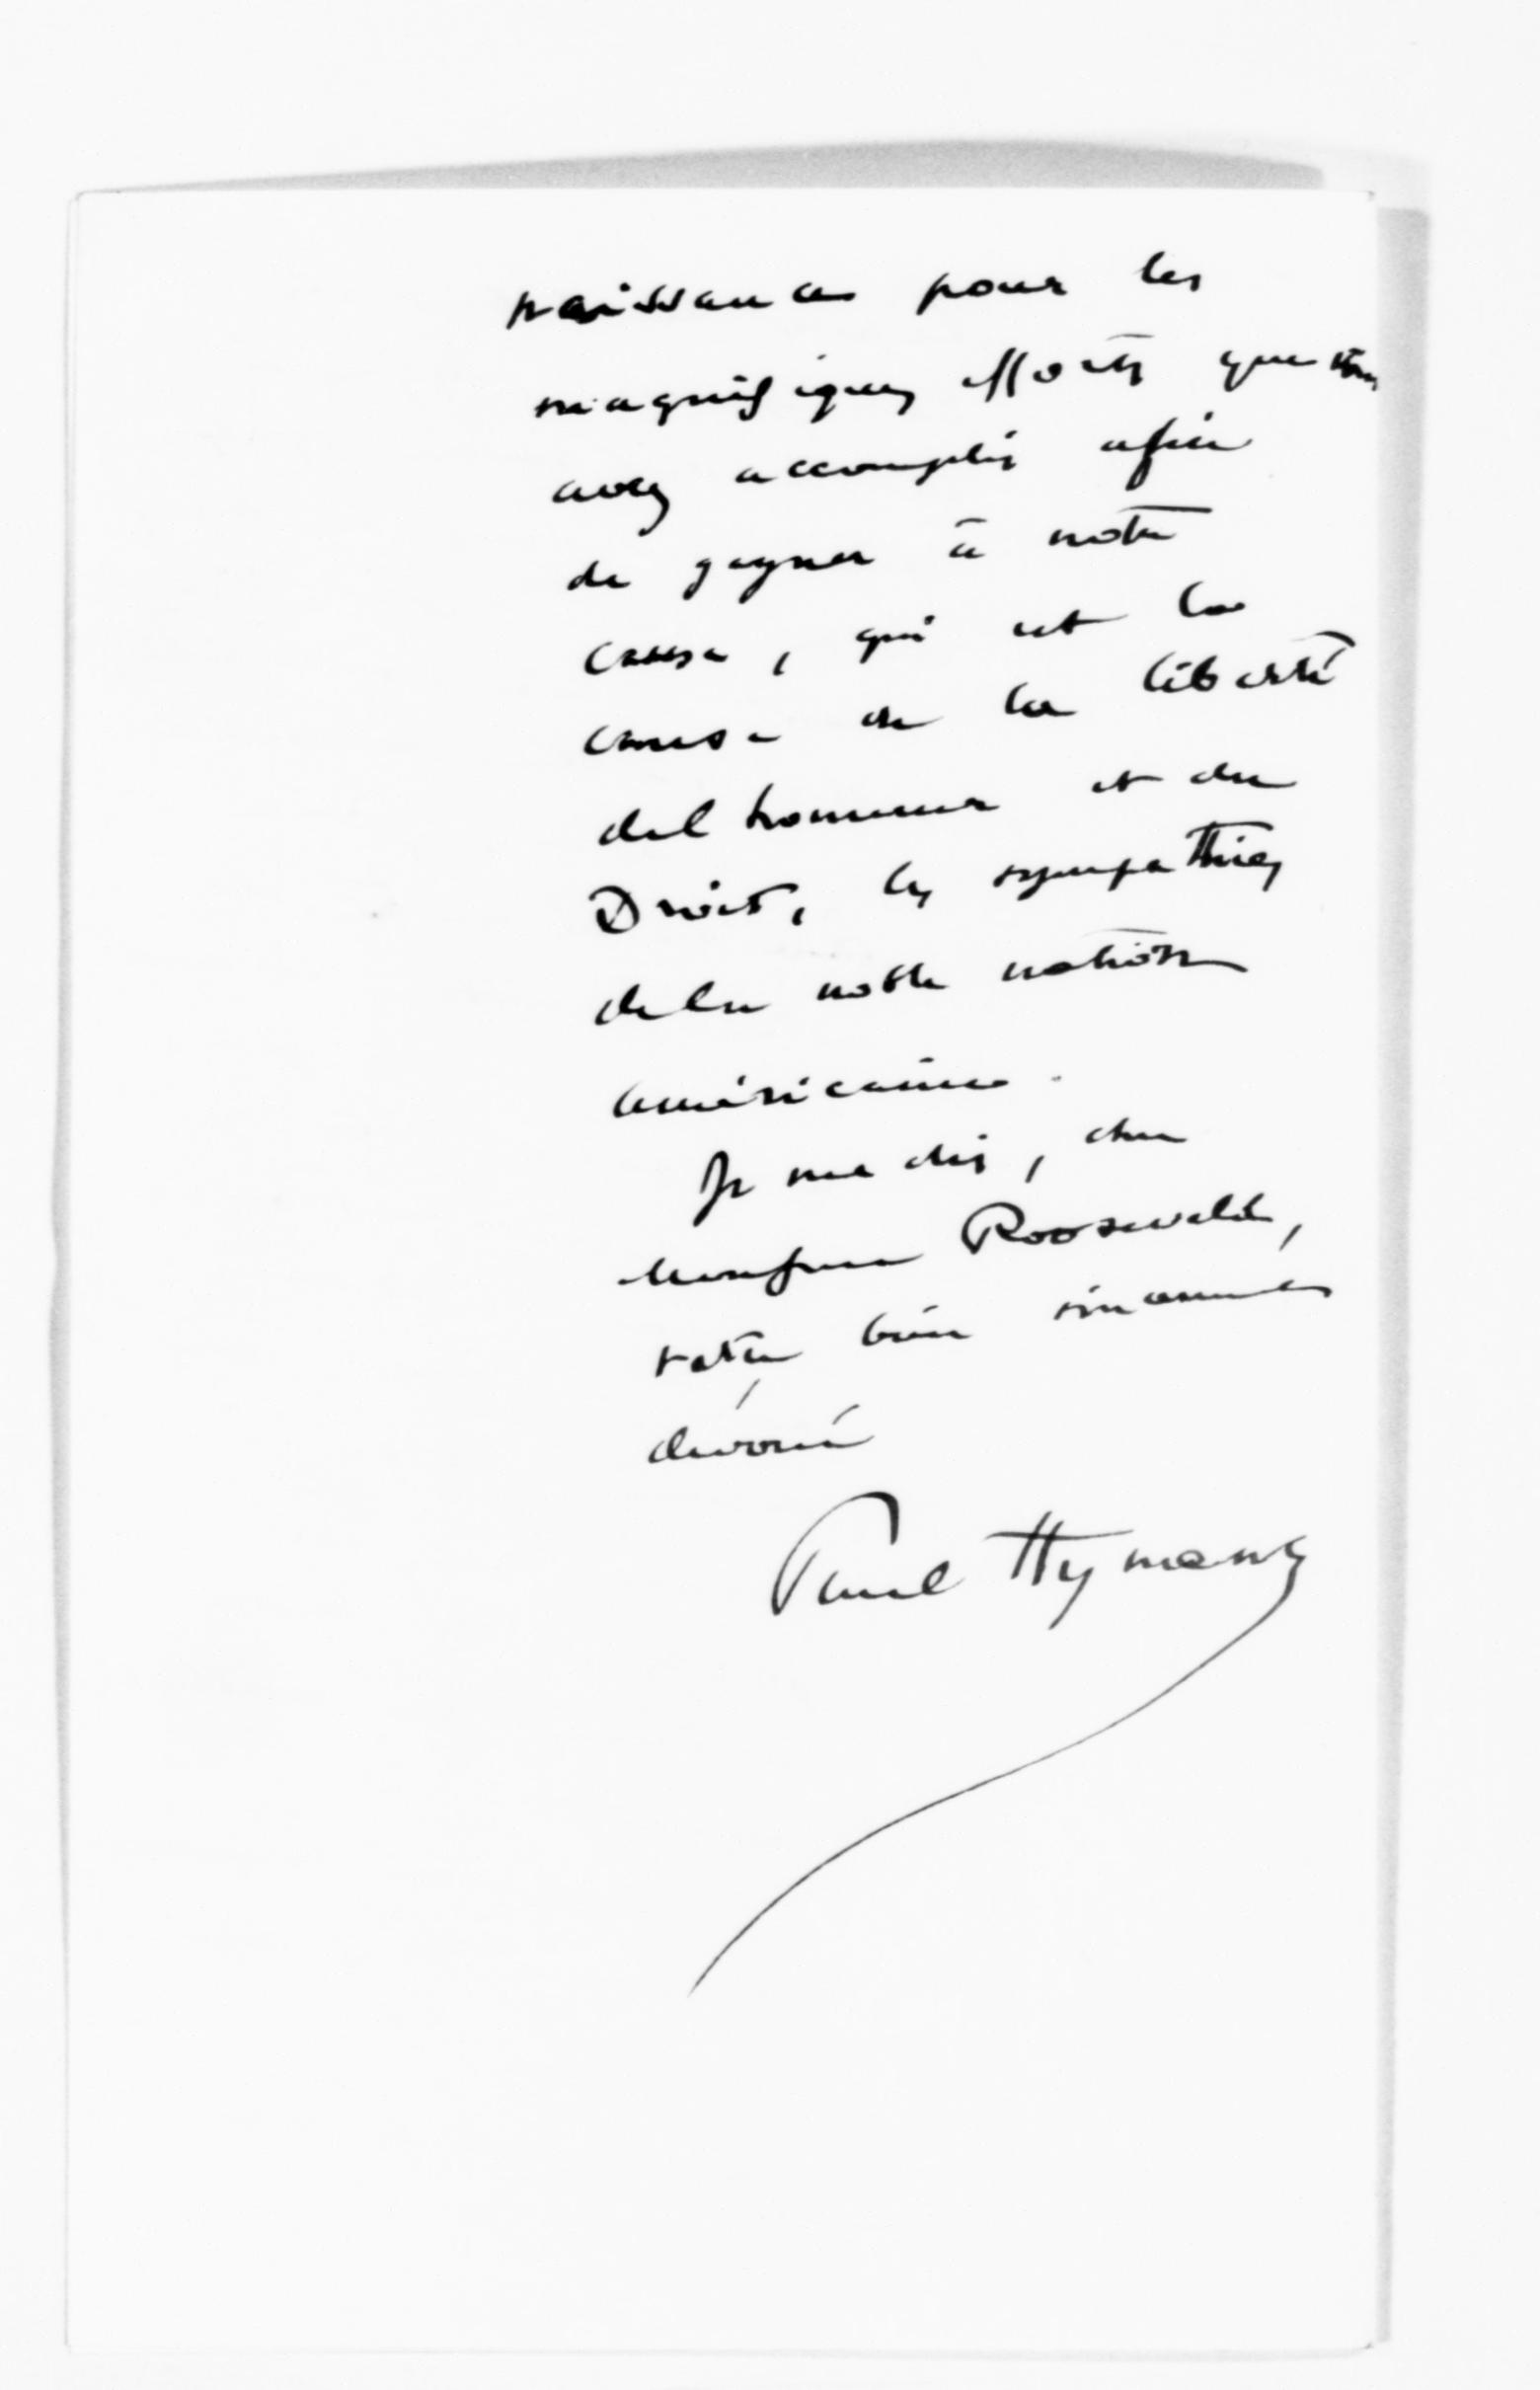 naissance pour les
magnifiques efforts que vous
avez accomplis afin
de gagner à notre
cause, qui est la
cause de la liberté
de l'honneur et du
Droit, les sympathies
de la noble nation
américaine.
Je me dis, cher
Monsieur Roosevelt,
votre bien sincèrement
dévoué
Paul Hymans